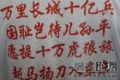 万里长城十亿兵
国耻岂待儿孙平
愿提十万虎狼旅
越马扬刀